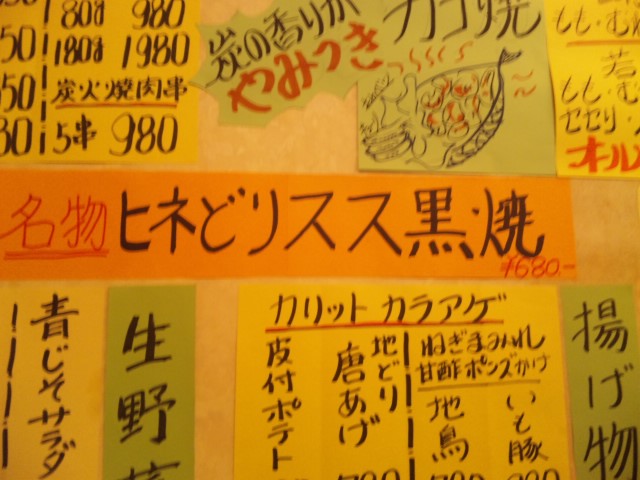 80g 980
50 180g 1980
50 炭火焼肉串
80 5串 980
炭の香りが
やみつき
もも・む
若
もも・む
セセリ
オール
名物 ヒネどリスス黒焼
¥680.-
青じそサラダ
生野菜
カリット カラアゲ
皮付ポテト
地どり
唐あげ
ねぎまみれ
甘酢ポンズかけ
地鳥
いも豚
揚げ物